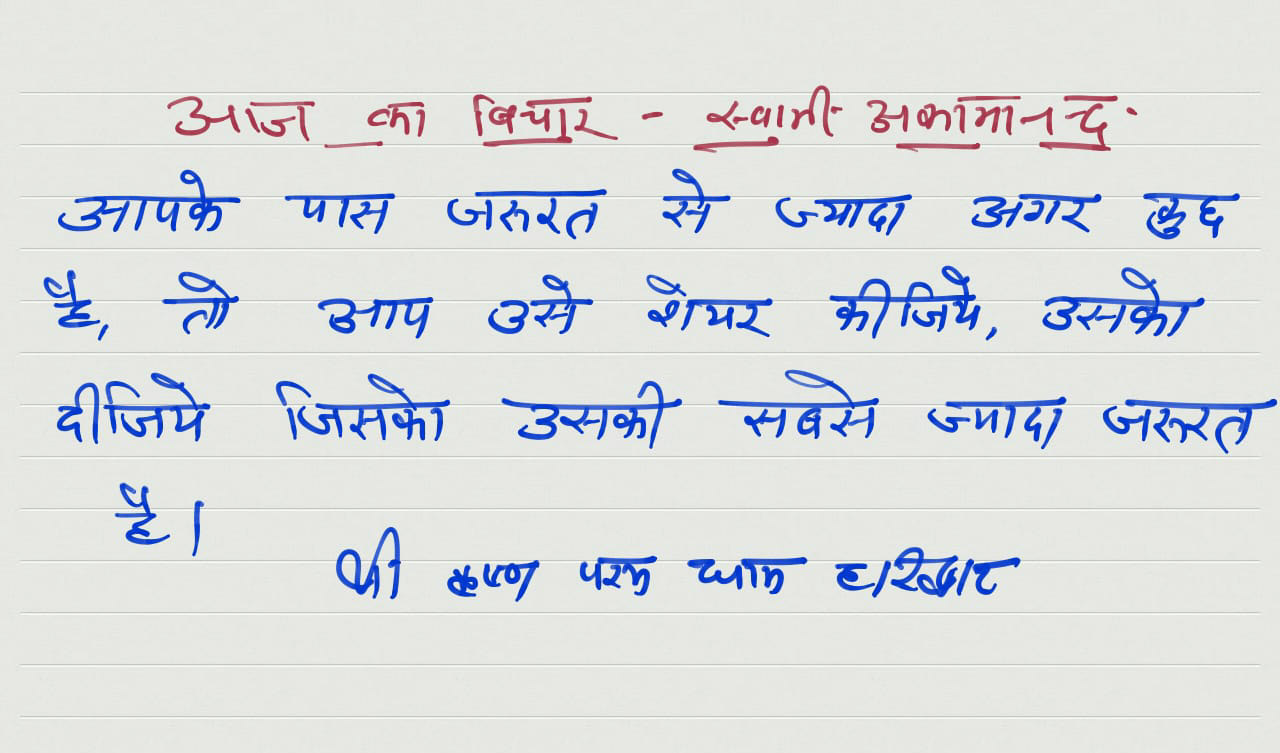 आज का विचार - स्वामी अकामानन्द
आपके पास जरूरत से ज्यादा अगर कुछ
है, तो आप उसे शेयर कीजिये, उसको
दीजिये जिसको उसकी सबसे ज्यादा जरूरत
है।
श्री कृष्ण परम धाम हरिद्वार